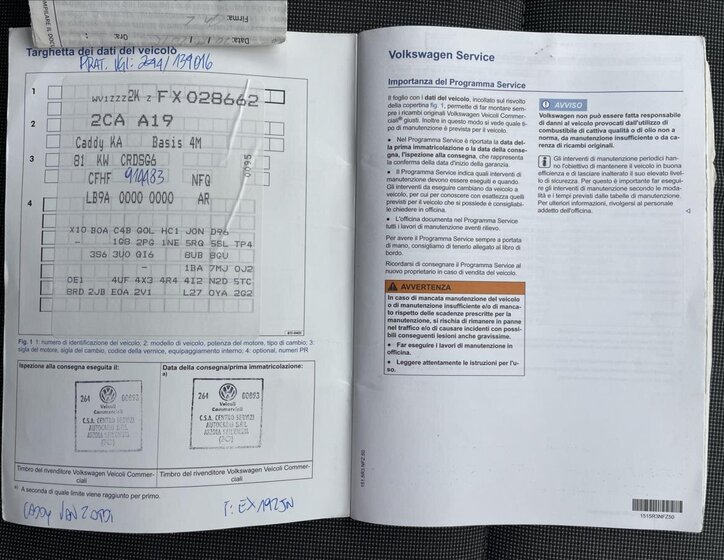 COMPILARE IL DOCU
Firma:
Data:
Ora:
Targhetta dei dati del veicolo
1
WV1ZZZ2K Z FX028662
2
2CA A19
Caddy KA Basis 4M
3
81 KW CRDSG6
0095
CFHF 914483 NFQ
4
LB9A 0000 0000 AR
X10 B0A C4B G0L HC1 J0N D96
- 1G8 2PG 1NE 5RQ 5SL TP4
3S6 3U0 QI6 8UB 8GU
- 1BA 7MJ 0J2
0E1 4UF 4X3 4R4 4I2 N2D 5TC
8RD 2JB E0A 2V1 L27 0YA 2G2
Fig. 1 1: numero di identificazione del veicolo; 2: modello di veicolo, potenza del motore, tipo di cambio; 3:
sigla del motore, sigla del cambio, codice della vernice, equipaggiamento interno; 4: optional, numeri PR
Ispezione alla consegna eseguita il:
Data della consegna/prima immatricolazione:
a)
264 00893
Veicoli
Commerciali
C.S.A. CENTRO SERVIZI
264 00893
Veicoli
Commerciali
C.S.A. CENTRO SERVIZI
Timbro del rivenditore Volkswagen Veicoli Commer-
ciali
Timbro del rivenditore Volkswagen Veicoli Commer-
ciali
a) A seconda di quale limite viene raggiunto per primo.
CADDY VAN 2.0TDI
T: EX192JN
Volkswagen Service
Importanza del Programma Service
Il foglio con i dati del veicolo, incollato sul risvolto
della copertina fig. 1, permette di far montare sem-
pre i ricambi originali Volkswagen Veicoli Commer-
ciali® giusti. Inoltre in questo modo si vede quale ti-
po di manutenzione è prevista per il veicolo.
● Nel Programma Service è riportata la data del-
la prima immatricolazione o la data della conse-
gna, l'ispezione alla consegna, che rappresenta
la conferma della data d'inizio della garanzia.
● Il Programma Service indica quali interventi di
manutenzione devono essere eseguiti e quando.
Gli interventi da eseguire cambiano da veicolo a
veicolo, per cui per conoscere con esattezza quelli
previsti per il veicolo che si possiede è consigliabi-
le chiedere in officina.
● L'officina documenta nel Programma Service
tutti i lavori di manutenzione aventi rilievo.
Per avere il Programma Service sempre a portata
di mano, consigliamo di tenerlo allegato al libro di
bordo.
Ricordarsi di consegnare il Programma Service al
nuovo proprietario in caso di vendita del veicolo.
AVVERTENZA
In caso di mancata manutenzione del veicolo
o di manutenzione insufficiente e/o di manca-
to rispetto delle scadenze prescritte per la
manutenzione, si rischia di rimanere in panne
nel traffico e/o di causare incidenti con possi-
bili conseguenti lesioni anche gravissime.
● Far eseguire i lavori di manutenzione in
officina.
● Leggere attentamente le istruzioni per l'u-
so.
AVVISO
Volkswagen non può essere fatta responsabile
di danni al veicolo provocati dall'utilizzo di
combustibile di cattiva qualità o di olio non a
norma, da manutenzione insufficiente o da ca-
renza di ricambi originali.
Gli interventi di manutenzione periodici han-
no l'obiettivo di mantenere il veicolo in buona
efficienza e di lasciare inalterato il suo elevato livel-
lo di sicurezza. Per questo è importante far esegui-
re gli interventi di manutenzione secondo le moda-
lità e i tempi previsti dalle tabelle di manutenzione.
Per ulteriori informazioni, rivolgersi al personale
addetto dell'officina.
151.5R3.NFZ.50
1515R3NFZ50